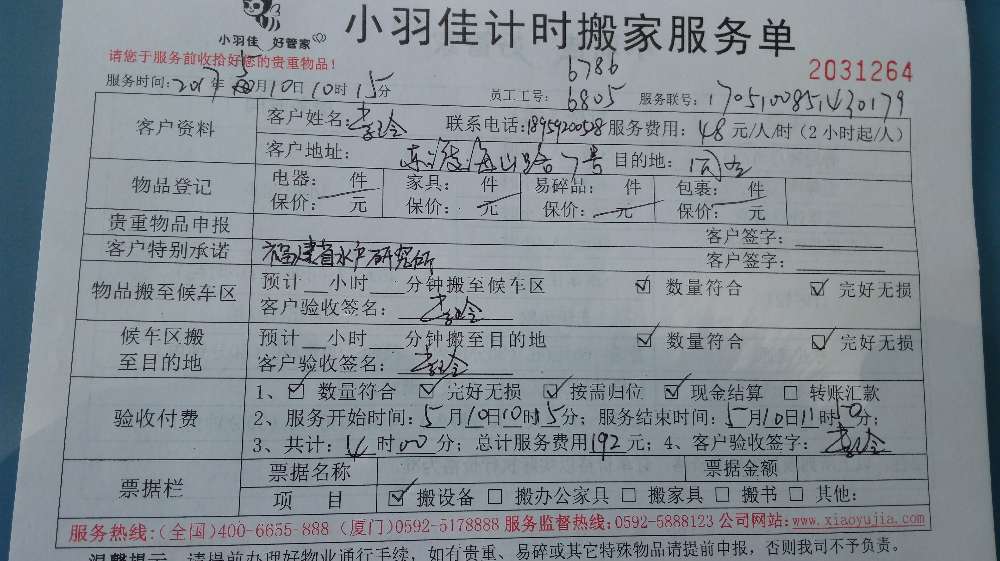 小羽佳计时搬家服务单
小羽佳 好管家
请您于服务前收拾好您的贵重物品！
2031264
6786
服务时间：2017年5月10日10时15分 员工工号：6805 服务联号：1705100851430179
客户资料 客户姓名： 联系电话：18959200528 服务费用：48元/人/时（2小时起/人）
客户地址：东渡海山路7号 目的地：同上
物品登记 电器： 件 家具： 件 易碎品： 件 包裹： 件
保价： 元 保价： 元 保价： 元 保价： 元
贵重物品申报 客户签字：
客户特别承诺 福建省水产研究所 客户签字：
物品搬至候车区 预计__小时___分钟搬至候车区 ☑ 数量符合 ☑ 完好无损
客户验收签名：
候车区搬至目的地 预计__小时___分钟搬至目的地 ☑ 数量符合 ☑ 完好无损
客户验收签名：
验收付费 1、☑ 数量符合 ☑ 完好无损 ☑ 按需归位 ☑ 现金结算 □ 转账汇款
2、服务开始时间：5月10日10时15分；服务结束时间：5月10日11时50分；
3、共计：4时00分；总计服务费用192元；4、客户验收签字：
票据栏 票据名称 票据金额
项 目 ☑ 搬设备 □ 搬办公家具 □ 搬家具 □ 搬书 □ 其他：
服务热线:(全国)400-6655-888 (厦门)0592-5178888 服务监督热线:0592-5888123 公司网站:www.xiaoyujia.com
温馨提示 请提前办理好物业通行手续，如有贵重、易碎或其它特殊物品请提前申报，否则我司不予负责。